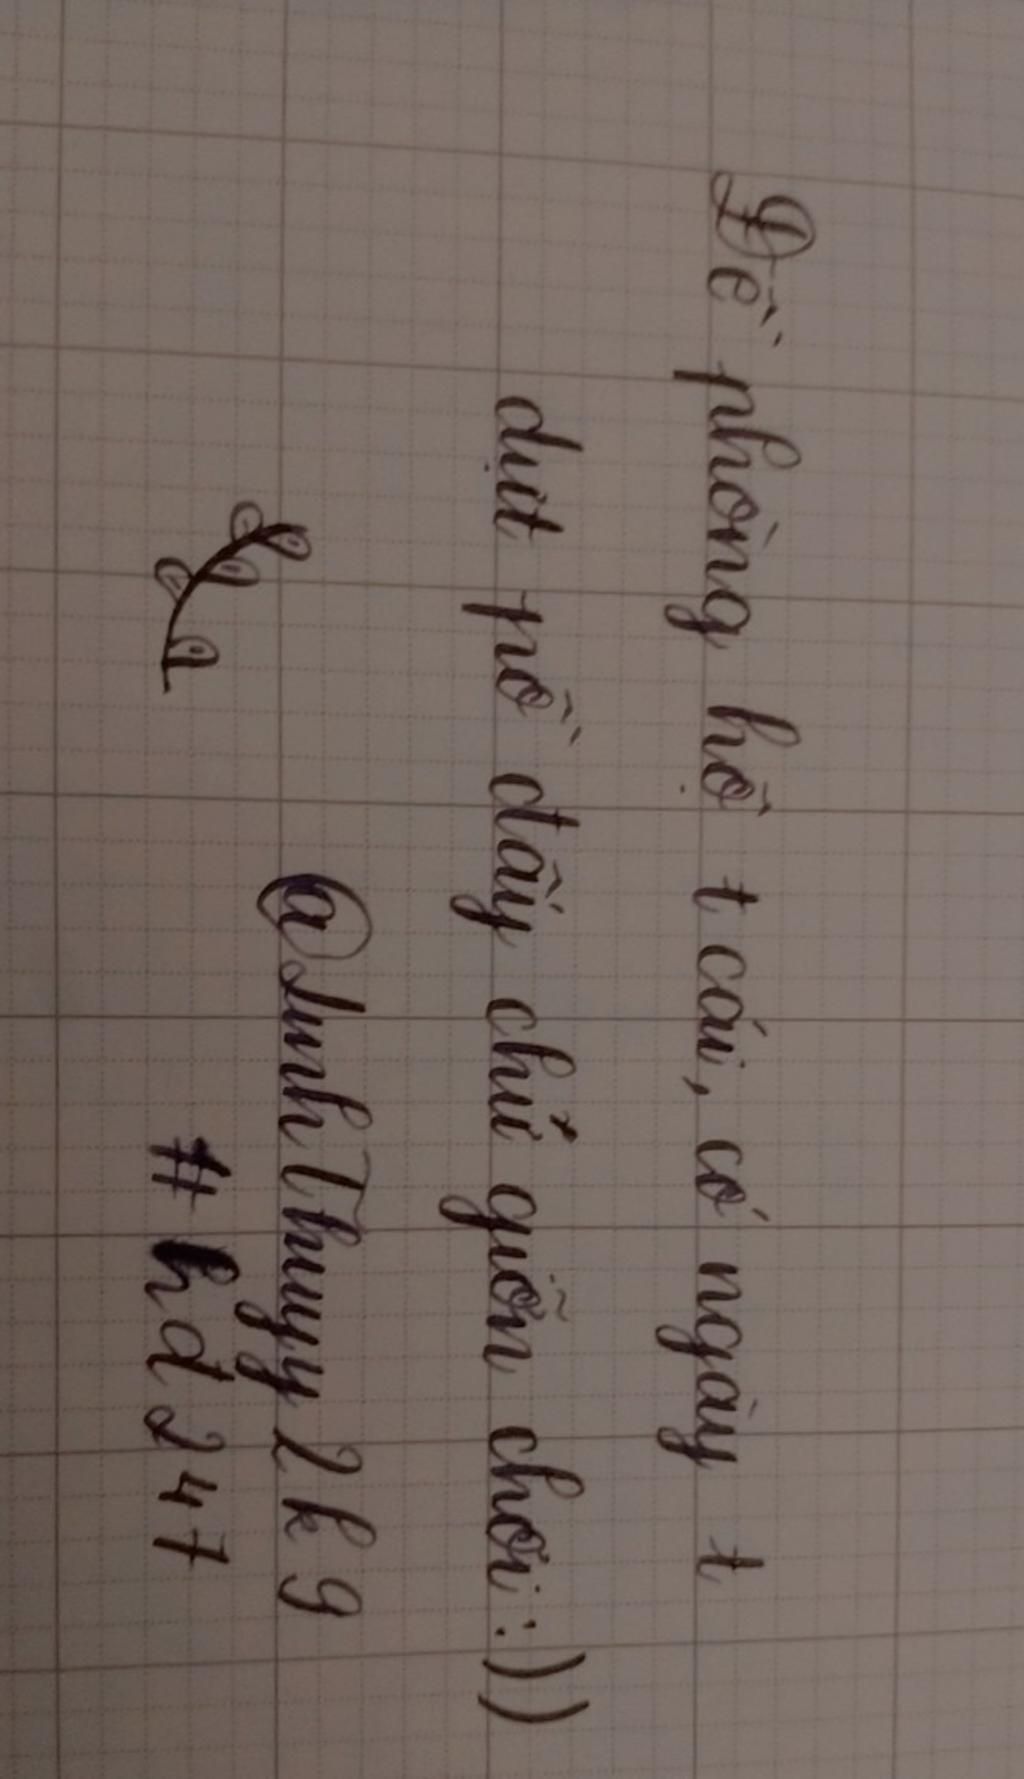 Đề phòng hộ t cái, có ngày t
dịt pồ đấy chứ giỡn chơi :))
@LinhThuyy2k9
#hd247